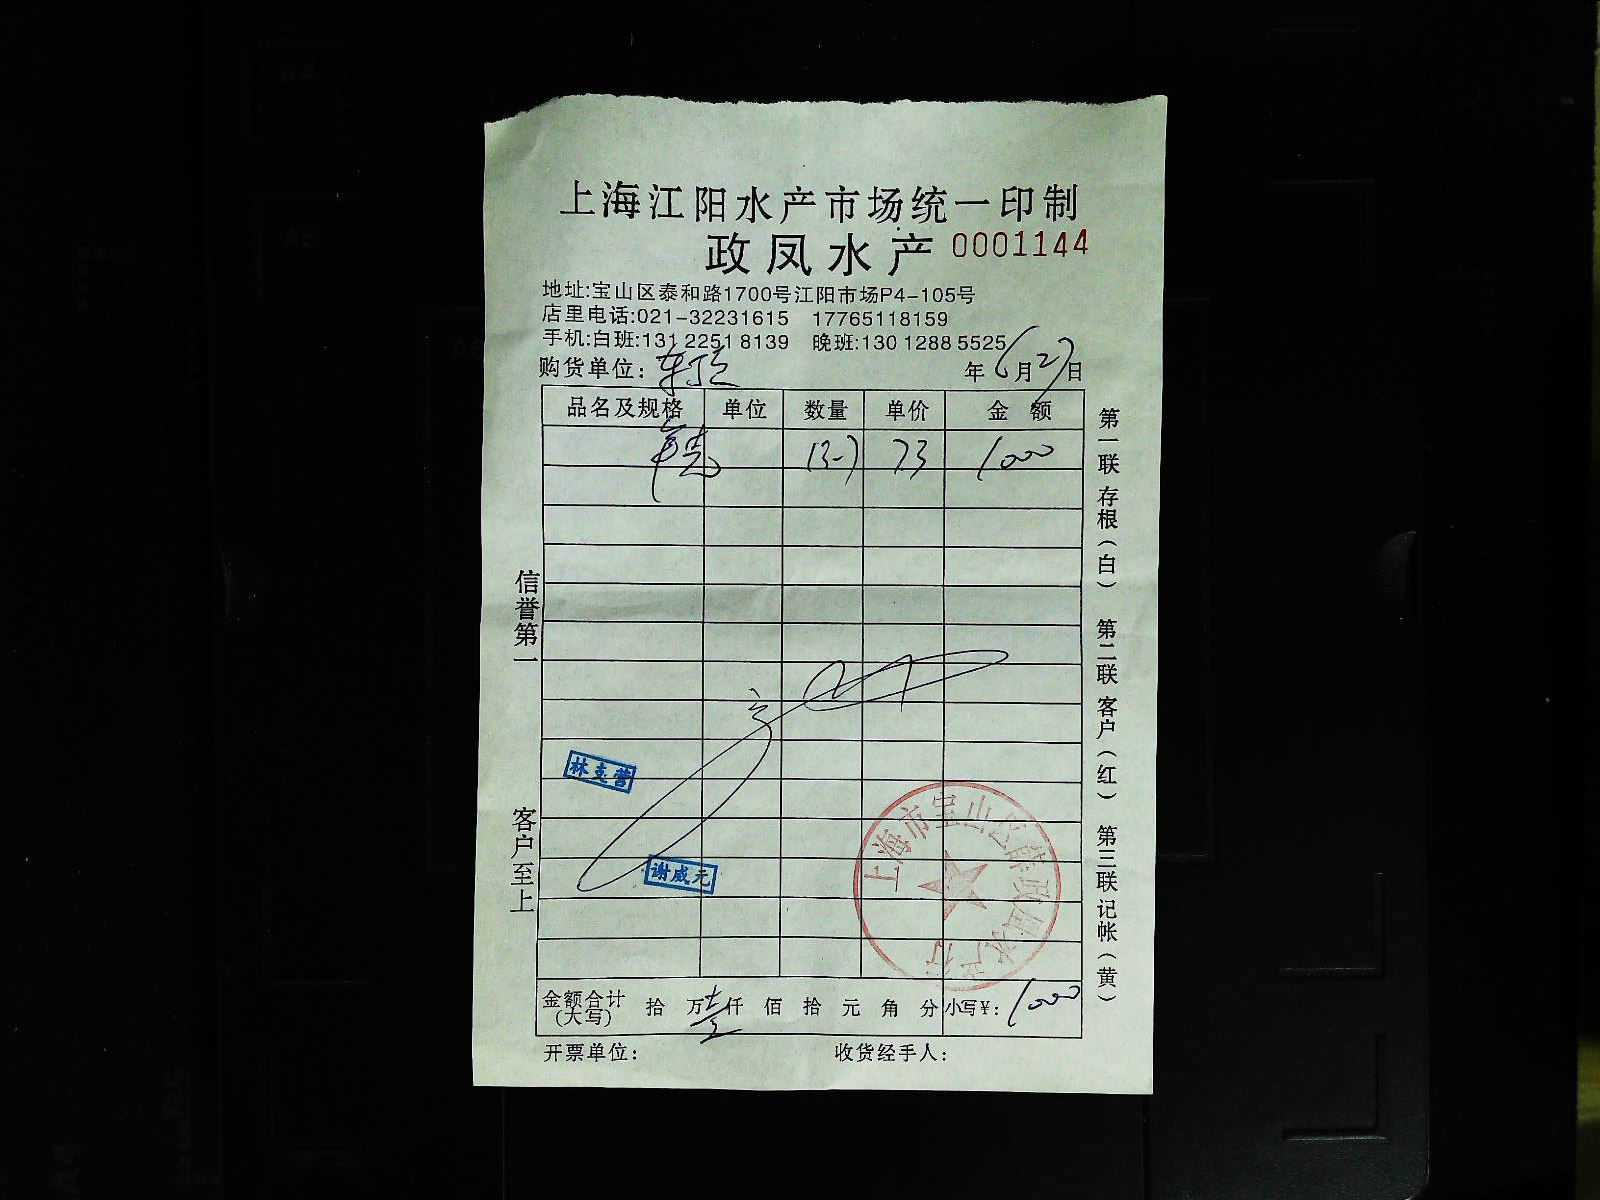 上海江阳水产市场统一印制
政凤水产 0001144
地址:宝山区泰和路1700号江阳市场P4-105号
店里电话:021-32231615 17765118159
手机:白班:131 2251 8139 晚班:130 1288 5525
购货单位: 年6月27日
品名及规格 单位 数量 单价 金额
13-7 73 1000
信誉第一
客户至上
第一联存根(白) 第二联客户(红) 第三联记帐(黄)
林 营
谢咸元
上海市宝山区 政凤水产行
金额合计(大写) 拾 万 壹 仟 佰 拾 元 角 分 小写¥: 1000
开票单位: 收货经手人: